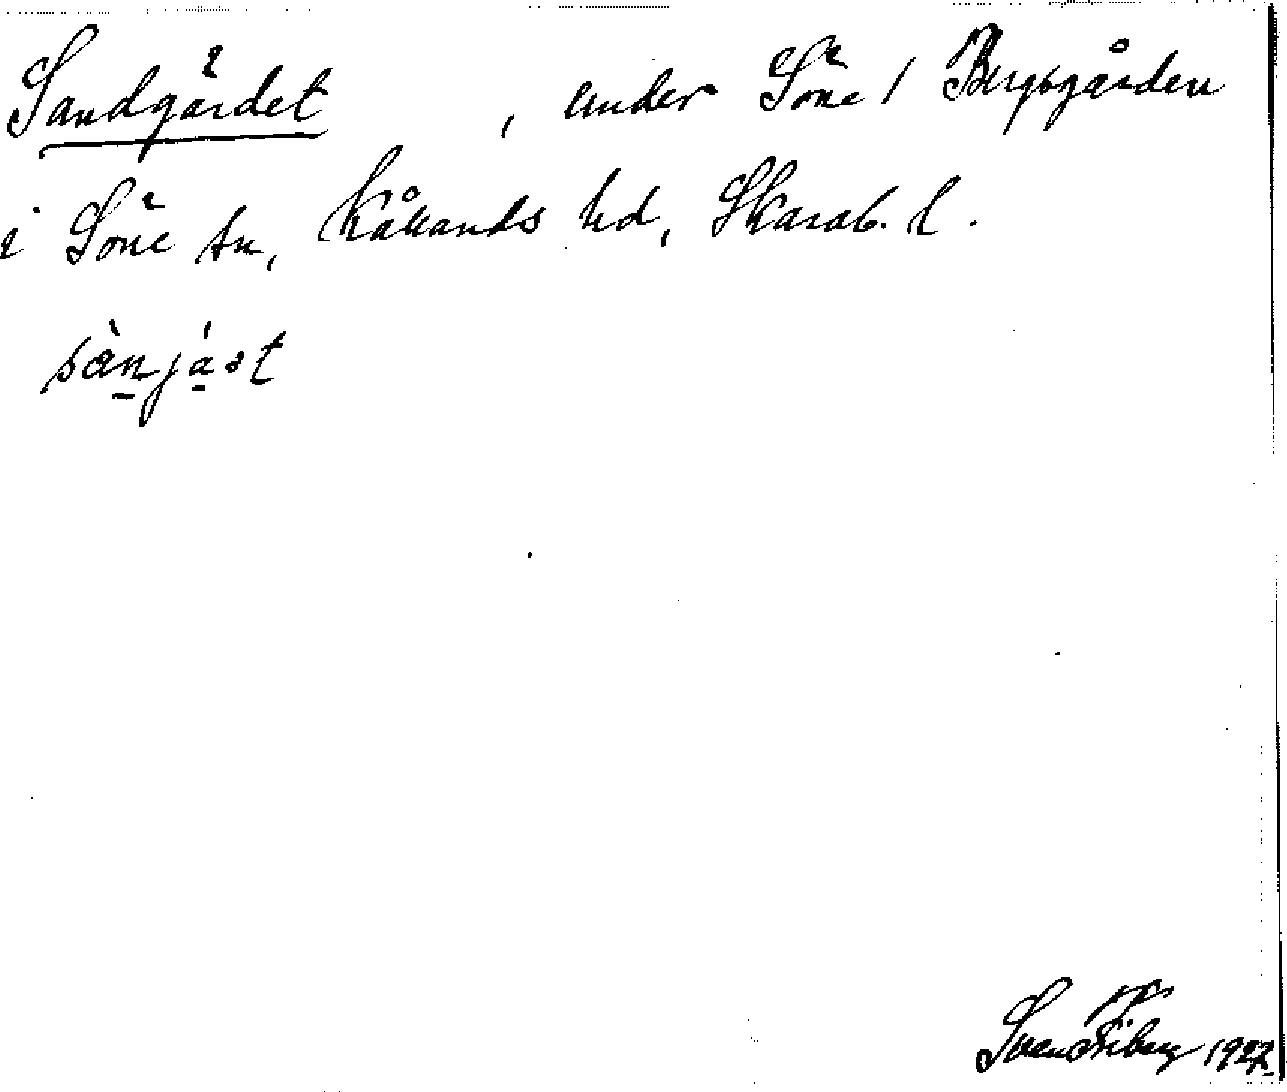 Sandgärdet , under Söne / Bergsgården
i Söne sn, Kållands hd, Skarab. l.
sànjást
Sven 1927.